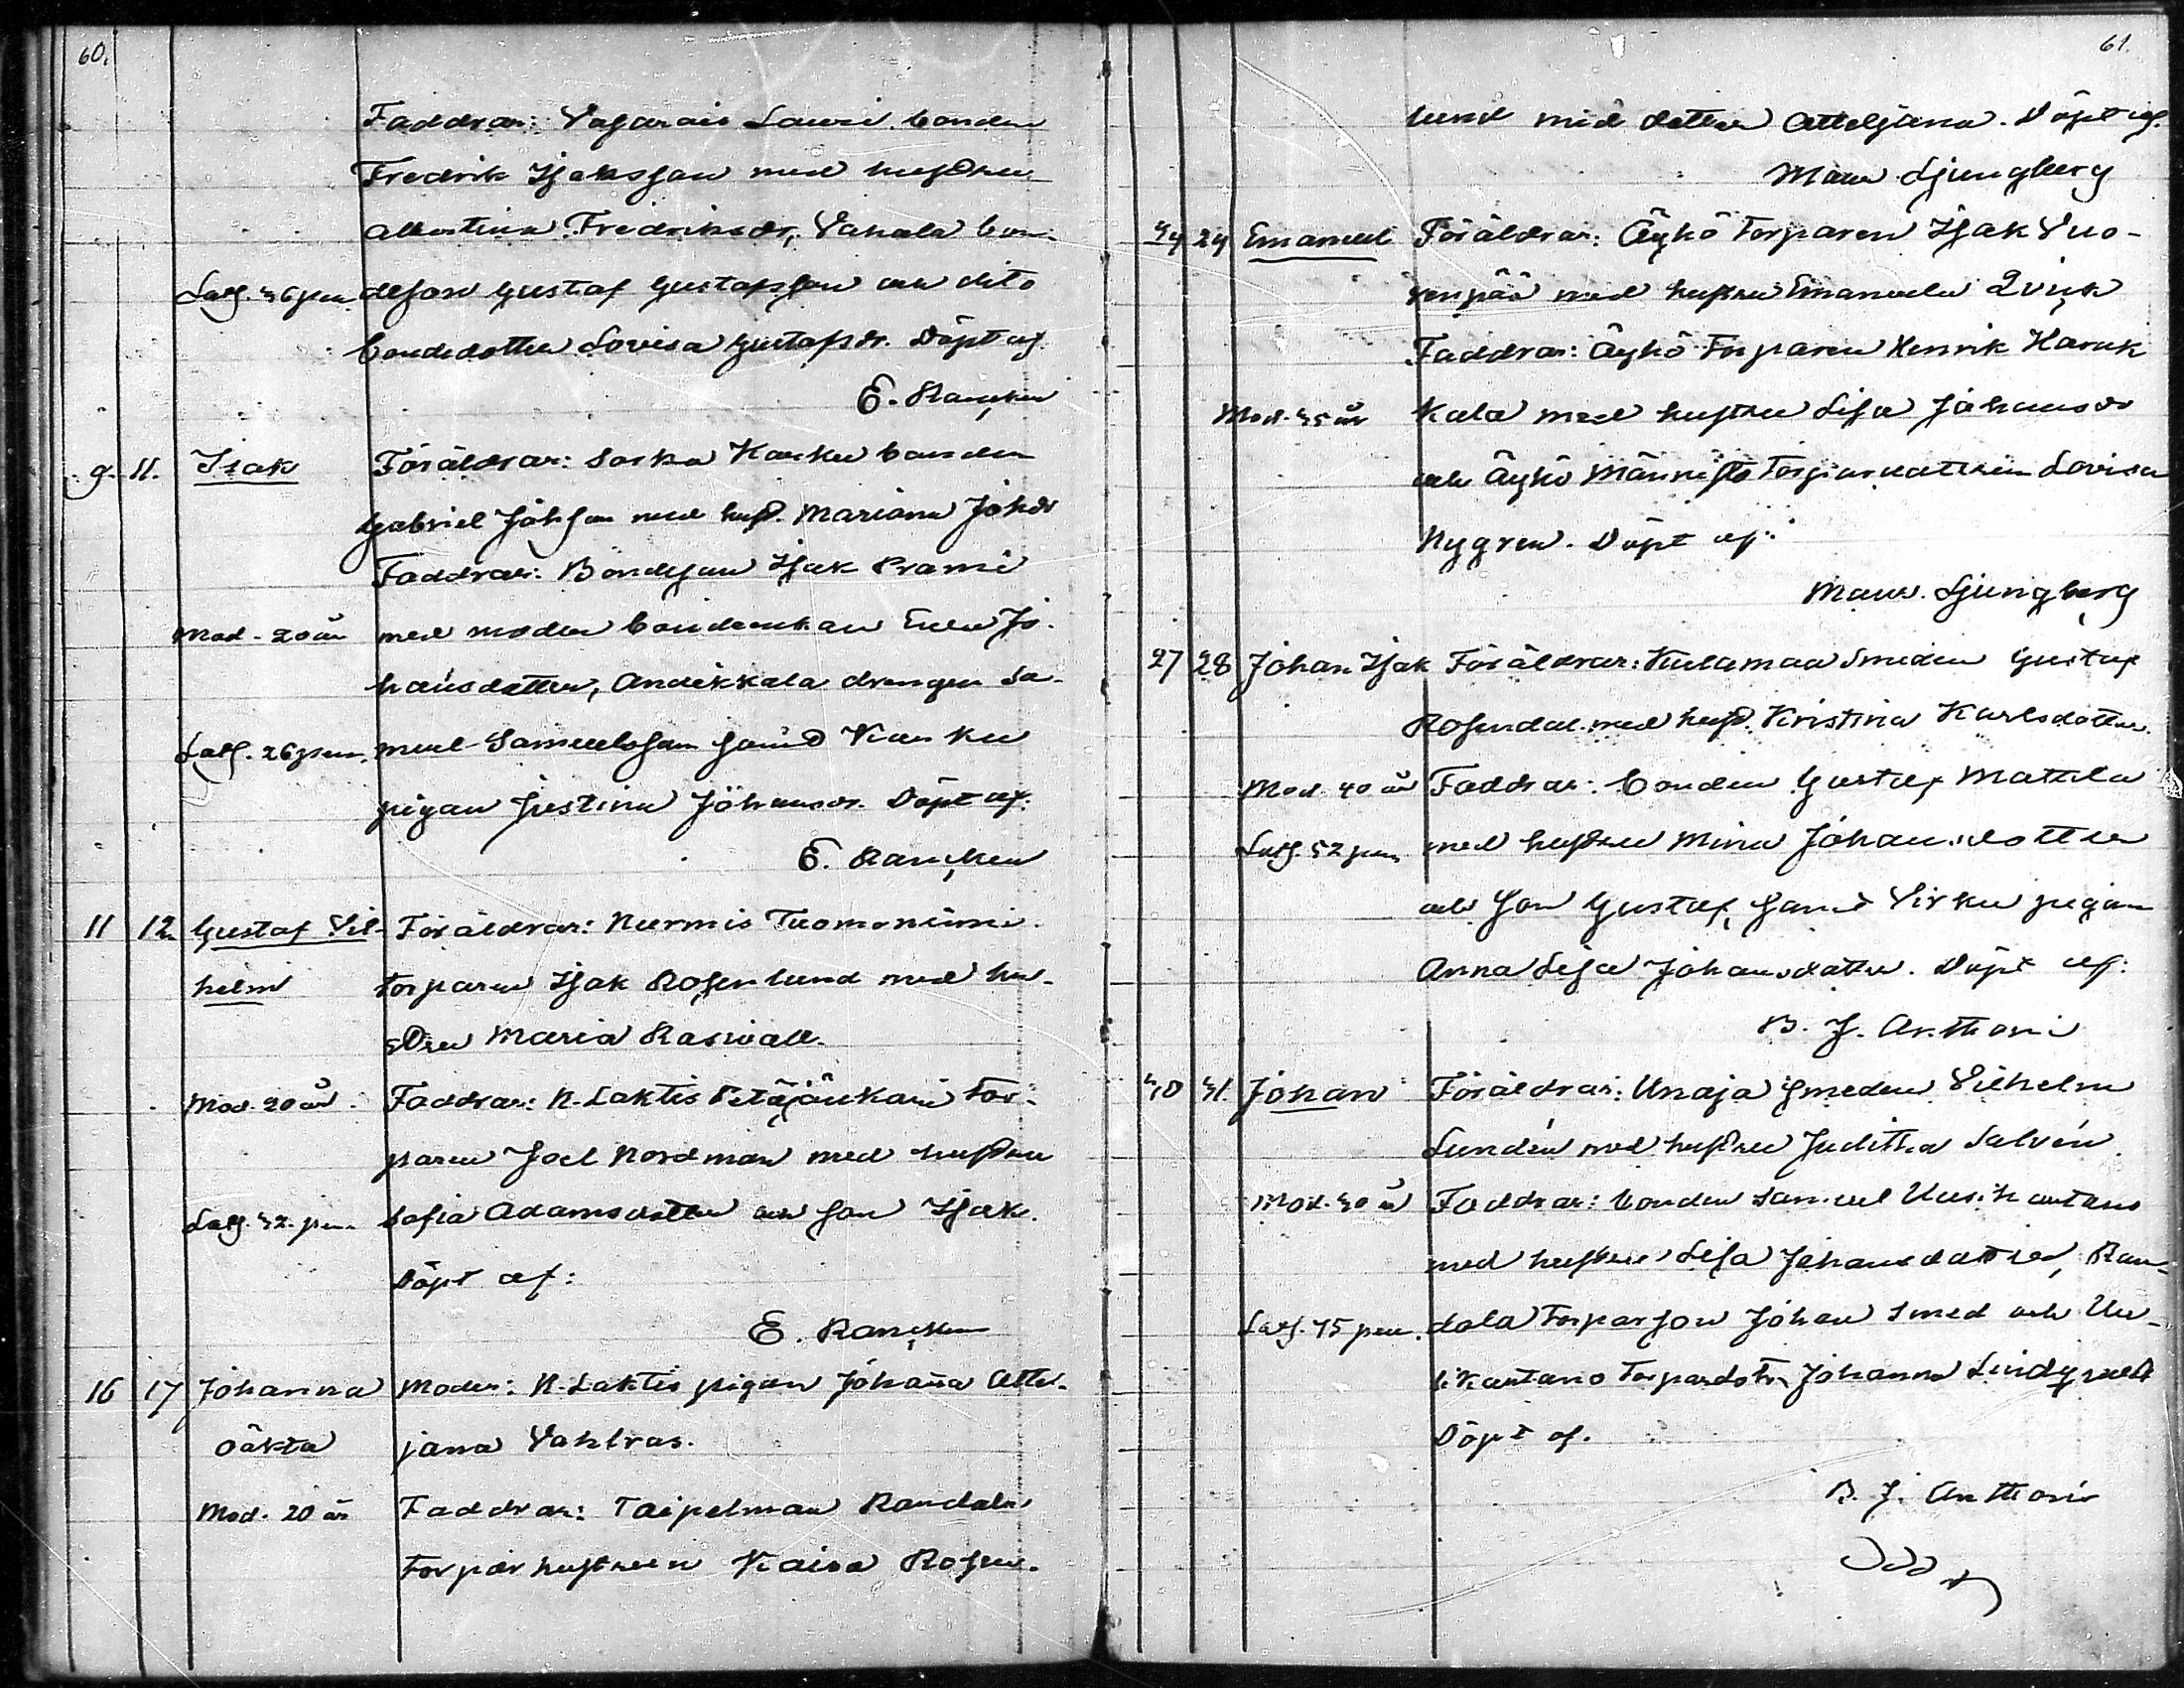 60.
Faddrar: Vasarais Lauri bonden
Fredrik Isaksson med hustru
Albertina Fredriksdr, Vahala bon-
Lasf. 36 pen deson Gustaf Gustafsson och dito
bondedotter Lovisa Gustafsdr. Döpt af
E. Rancken
9. 11. Isak Föräldrar: Sorka Kauku bonden
Gabriel Johsson med hust. Mariana Johdr
Faddrar: Bondeson Isak Prami
Mod. 20 år med moder bondeenkan Eva Jo-
hansdotter, Anikkala drengen Sa-
Lasf. 26 pen. muel Samuelsson samt Kauku
pigan Justina Johansdr. Döpt af:
E. Rancken
11 12 Gustaf Vil- Föräldrar: Nurmis Tuomoniemi
helm torparen Isak Rosenlund med hu-
stru Maria Raswall.
Mod. 20 år. Faddrar: N. Laktis Petäjänkari tor-
paren Joel Nordman med hustru
Lasf. 32 pen Sofia Adamsdotter och son Isak.
Döpt af:
E. Rancken
16 17 Johanna Moder: N. Laktis pigan Johanna Atte-
oäkta jana Vahlras.
Mod. 20 år Faddrar: Taipelman Randala
torpar hustrun Kaisa Rosen-
61.
lund med dotter Atteljana. Döpt af.
Maur. Ljungberg
24 24 Emanuel Föräldrar: Äyhö torparen Isak Vuo-
renpää med hustru Emanuela Qvick
Faddrar: Äyhö Torparen Henrik Haruk
Mod. 35 år kala med hustru Lisa Johansdr
och Äyhö Männistö Lovisa
Nygren. Döpt af:
Maur. Ljungberg
27 28 Johan Isak Föräldrar: Kulamaa Smeden Gustaf
Rosendal med hust. Kristina Karlsdotter.
Mod. 40 år Faddrar: bonden Gustaf Mattila
Lasf. 52 pen med hustru Mina Johansdotter
och son Gustaf, samt Virku pigan
Anna Lisa Johansdotter. Döpt af:
B. J. Anthoni
30 31. Johan Föräldrar: Unaja smeden Vilhelm
Lundén med hustru Juditha Salvén.
Mod. 30 år Faddrar: bonden Samuel Uusikartano
med hustru Lisa Johansdotter, Ran-
Lasf. 45 pen. dala Torparson Johan Smed och Uu-
sikartano torpardotr Johanna Lindqvist
Döpt af.
B. J. Anthoni